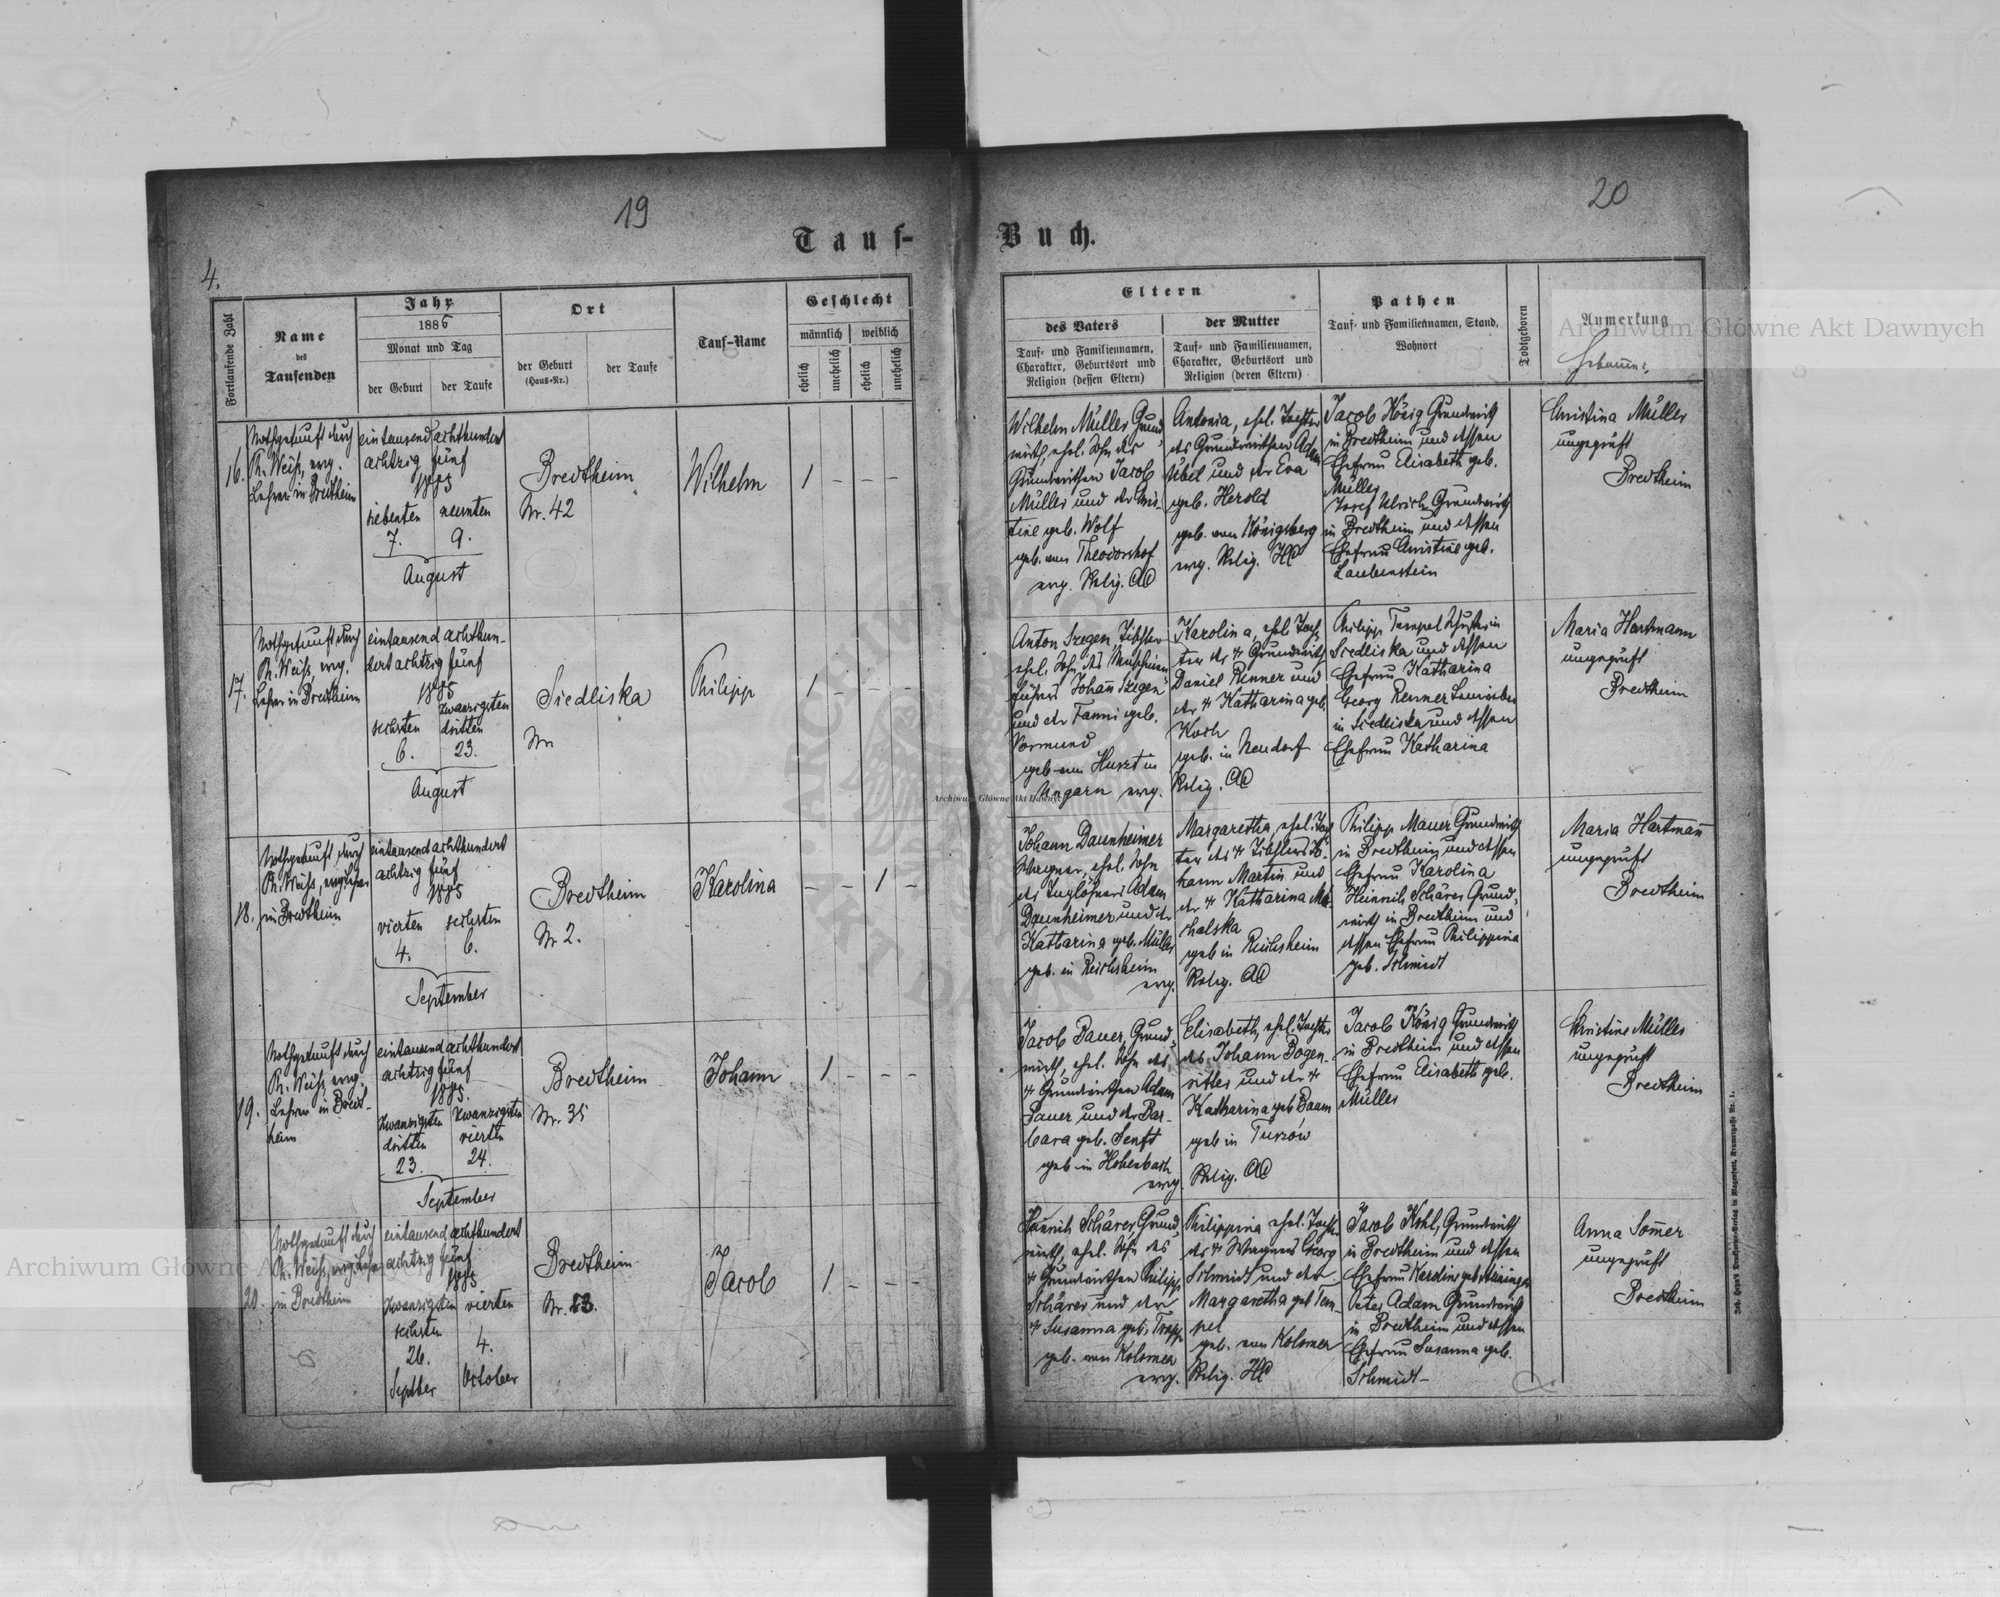 19
20
Tauf-
Buch.
4.
Fortlaufende Zahl
Name
des
Taufenden
Jahr
1885
Monat und Tag
der Geburt
der Taufe
Ort
der Geburt
(Haus-Nr.)
der Taufe
Tauf-Name
Geschlecht
männlich
weiblich
ehelich
unehelich
ehelich
unehelich
Eltern
des Vaters
Tauf- und Familiennamen,
Charakter, Geburtsort und
Religion (dessen Eltern)
der Mutter
Tauf- und Familiennamen,
Charakter, Geburtsort und
Religion (deren Eltern)
Pathen
Tauf- und Familiennamen, Stand,
Wohnort
Todtgeboren
Anmerkung
16.
Nothgetauft durch
Ph. Weiß, evg.
Lehrer in Bredtheim
eintausend achthundert
achtzig fünf
1885
siebenten
7.
neunten
9.
August
Bredtheim
Nr. 42
Wilhelm
1 - - -
Wilhelm Müller Grund-
wirth, ehel. Sohn des
Grundwirthen Jacob
Müller und der Chris-
tine geb. Wolf
geb. von Theodorshof
evg. Relig. AC
Antonia, ehel. Tochter
des Grundwirthen Adam
Übel und der Eva
geb. Herold
geb. von Königsberg
evg. Relig. HC
Jacob König Grundwirth
in Bredtheim und dessen
Ehefrau Elisabeth geb.
Müller
Josef Ulrich Grundwirth
in Bredtheim und dessen
Ehefrau Christine geb.
Laubenstein
Christina Müller
ungeprüft
Bredtheim
17.
Nothgetauft durch
Ph. Weiß, evg.
Lehrer in Bredtheim
eintausend achthun-
dert achtzig fünf
1885
sechsten
6.
zwanzigsten
dritten
23.
August
Siedliska
Nr.
Philipp
1 - - -
Anton Szegen, Tischler
ehel. Sohn des
Johann Szegen
und der Fanni geb.
Vormund
geb. von Huszt in
Ungarn evg.
Karolina, ehel. Toch-
ter des † Grundwirth
Daniel Renner und
der † Katharina geb.
Koch
geb. in Neudorf
Relig. AC
Philipp Tempel Schuster in
Siedliska und dessen
Ehefrau Katharina
Georg Renner
in Siedliska und dessen
Ehefrau Katharina
Maria Hartmann
ungeprüft
Bredtheim
18.
Nothgetauft durch
Ph. Weiß, evg. Lehrer
in Bredtheim
eintausend achthundert
achtzig fünf
1885
vierten
4.
sechsten
6.
September
Bredtheim
Nr. 2.
Karolina
- - 1 -
Johann Daunheimer
Wagner, ehel. Sohn
des Taglöhners Adam
Daunheimer und der
Katharina geb. Müller
geb. in Reichsheim
evg.
Margaretha, ehel. Toch-
ter des † Tischlers Jo-
hann Martin und
der † Katharina Mi-
chalska
geb. in Reichsheim
Relig. AC
Philipp Mauer Grundwirth
in Bredtheim und dessen
Ehefrau Karolina
Heinrich Schärer Grund-
wirth in Bredtheim und
dessen Ehefrau Philippina
geb. Schmidt
Maria Hartmann
ungeprüft
Bredtheim
19.
Nothgetauft durch
Ph. Weiß, evg.
Lehrer in Bredt-
heim
eintausend achthundert
achtzig fünf
1885.
zwanzigsten
dritten
23.
zwanzigsten
vierten
24.
September
Bredtheim
Nr. 35
Johann
1 - - -
Jacob Bauer, Grund-
wirth, ehel. Sohn des
† Grundwirthen Adam
Bauer und der Bar-
bara geb. Senft
geb. in Hohenbach
evg.
Elisabeth, ehel. Tochter
des Johann Bogen-
ritter und der †
Katharina geb. Baum
geb. in Tuszów
Relig. AC
Jacob König Grundwirth
in Bredtheim und dessen
Ehefrau Elisabeth geb.
Müller
Christine Müller
ungeprüft
Bredtheim
20.
Nothgetauft durch
Ph. Weiß, evg. Lehrer
in Bredtheim
eintausend achthundert
achtzig fünf
1885
zwanzigsten
sechsten
26.
Septber
vierten
4.
October
Bredtheim
Nr. 13.
Jacob
1 - - -
Heinrich Schärer, Grund-
wirth, ehel. Sohn des
† Grundwirthen Philipp
Schärer und der
† Susanna geb. Trapp
geb. von Kolomea
evg.
Philippina ehel. Tochter
des † Wagners Georg
Schmidt und der
Margaretha geb. Tem-
pel
geb. von Kolomea
Relig. HC
Jacob Kohl, Grundwirth
in Bredtheim und dessen
Ehefrau Karoline geb.
Peter Adam Grundwirth
in Bredtheim und dessen
Ehefrau Susanna geb.
Schmidt
Anna Somer
ungeprüft
Bredtheim
Archiwum Główne Akt Dawnych
Archiwum Główne Akt Dawnych
Archiwum Główne Akt Dawnych